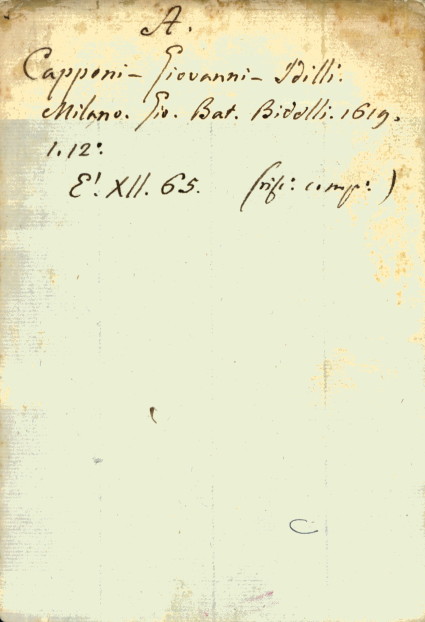 A.
Capponi - Giovanni - Idilli.
Milano. Gio. Bat. Bidelli. 1619.
1. 12°.
E! XII. 65.